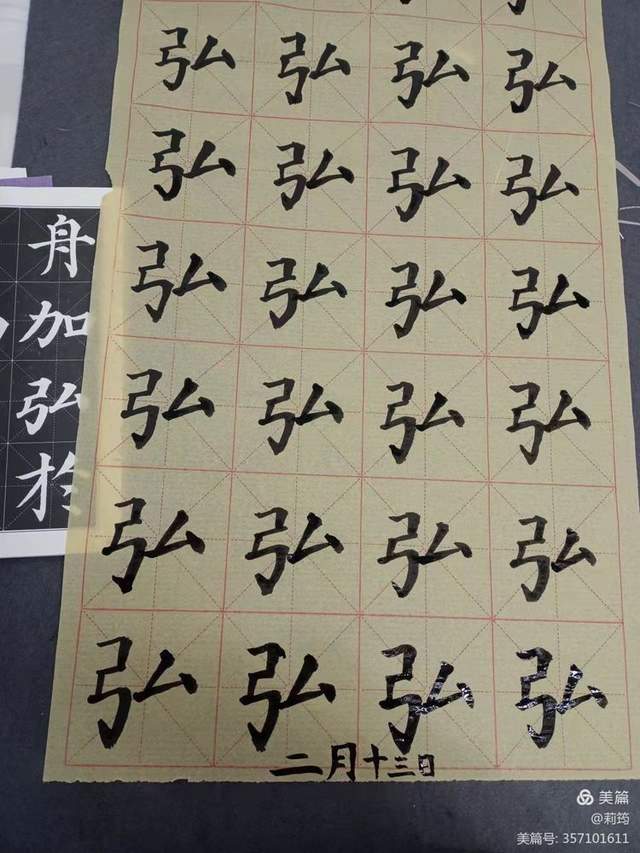 弘 弘 弘 弘
弘 弘 弘 弘
弘 弘 弘 弘
弘 弘 弘 弘
弘 弘 弘 弘
弘 弘 弘 弘
二月十三日
舟
加
弘
美篇
@莉筠
美篇号: 357101611